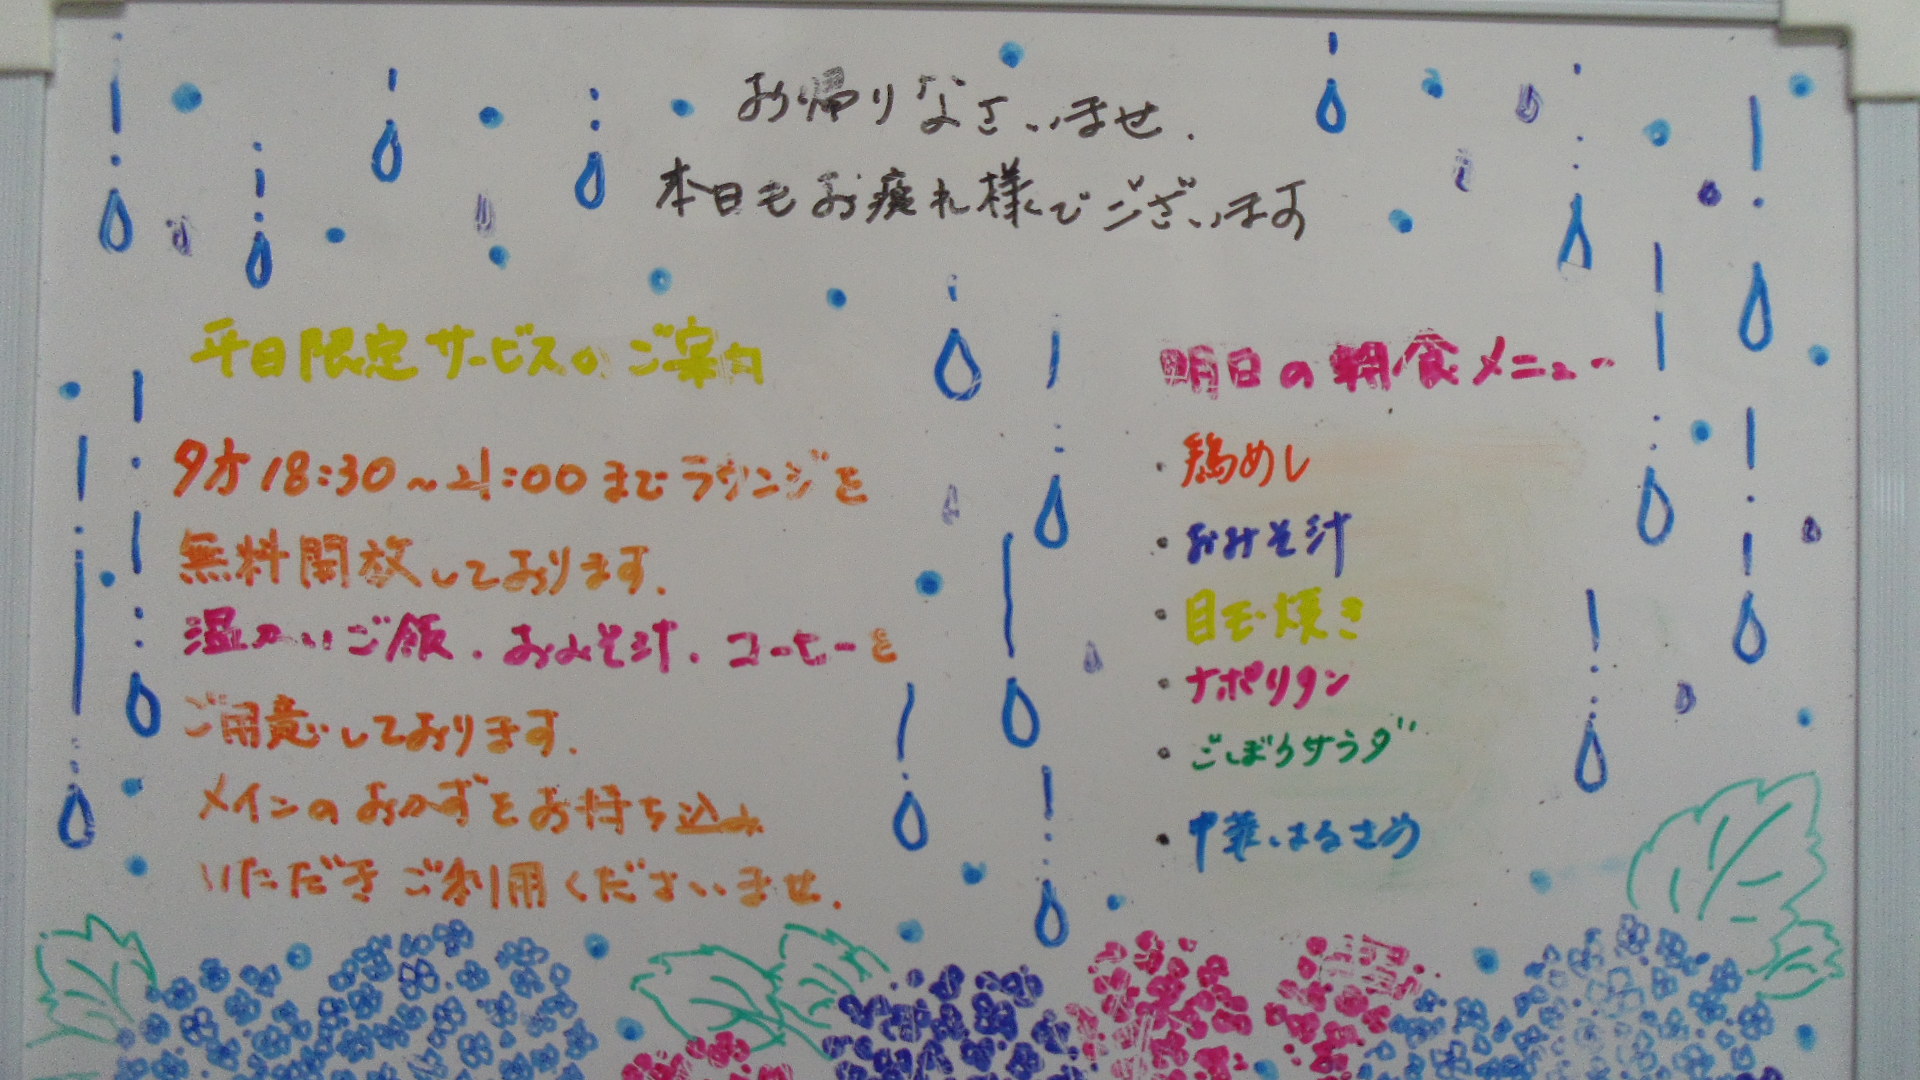 お帰りなさいませ.
本日もお疲れ様でございます
平日限定サービスのご案内
夕方18:30～21:00までラウンジを
無料開放しております.
温かいご飯.おみそ汁.コーヒーを
ご用意しております.
メインのおかずをお持ち込み
いただきご利用くださいませ.
明日の朝食メニュー
・鶏めし
・おみそ汁
・目玉焼き
・ナポリタン
・ごぼうサラダ
・中華はるさめ